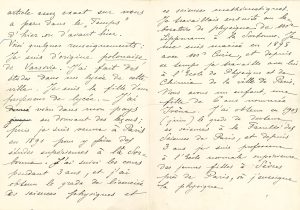 article assez exact sur nous
a paru dans le "Temps"
d'hier ou d'avant hier.
Voici quelques renseignements:
Je suis d'origine polonaise,
de Varsovie. J'ai fait des
études dans un lycée de cette
ville. Je suis la fille d'un
professeur de lycée. J'ai
dans mon pays
en donnant des leçons,
puis je suis venue à Paris
en 1891 pour y faire des
études supérieures à la Sor-
bonne. J'ai suivi les cours
pendant 3 ans, et j'ai
obtenu le grade de licenciée
ès sciences physiques et
ès sciences mathématiques.
Je travaillais ensuite au la-
boratoire de physique de M.
Lippmann à la Sorbonne. Je
me suis mariée en 1895
avec M. Curie, et depuis
ce temps je travaille avec lui
à l'École de Physique et de
Chimie de la ville de Paris.
Nous avons un enfant, une
fille de 6 ans.
J'ai obtenu en 1903
(juin) le grade de docteur
ès sciences à la Faculté des
Sciences de Paris et depuis
3 ans je suis professeur
à l'École normale supérieure
des jeunes filles à Sèvres
près de Paris, où j'enseigne
la physique.